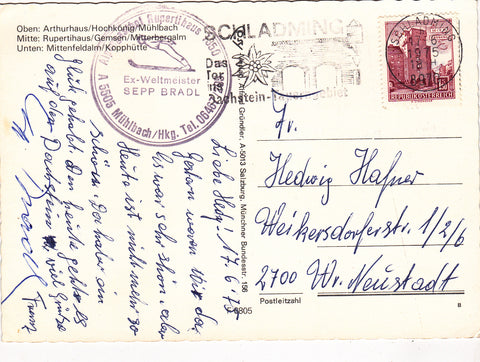 Oben: Arthurhaus/Hochkönig/Mühlbach
Mitte: Rupertihaus/Gemsen/Mitterbergalm
Unten: Mittenfeldalm/Kopphütte
Rupertihaus
Ex-Weltmeister
SEPP BRADL
A 5505 Mühlbach/Hkg. Tel. 06467
SCHLADMING
Das
Tor
ins
Dachstein-Tauerngebiet
SCHLADMING
REPUBLIK ÖSTERREICH
Gründler, A-5013 Salzburg, Münchner Bundesstr. 156
Liebe Hedy! 17.6.75
Gestern waren wir da.
Es war sehr schön. aber
Heute ist nicht mehr so
schön. Da habe ich
Glück gehabt. Den heute geht es
auf den Dachstein. viel Grüße
Franz
Fr.
Hedwig Hafner
Weikersdorferstr. 1/2/6
2700 Wr. Neustadt
Postleitzahl
F 6805
B